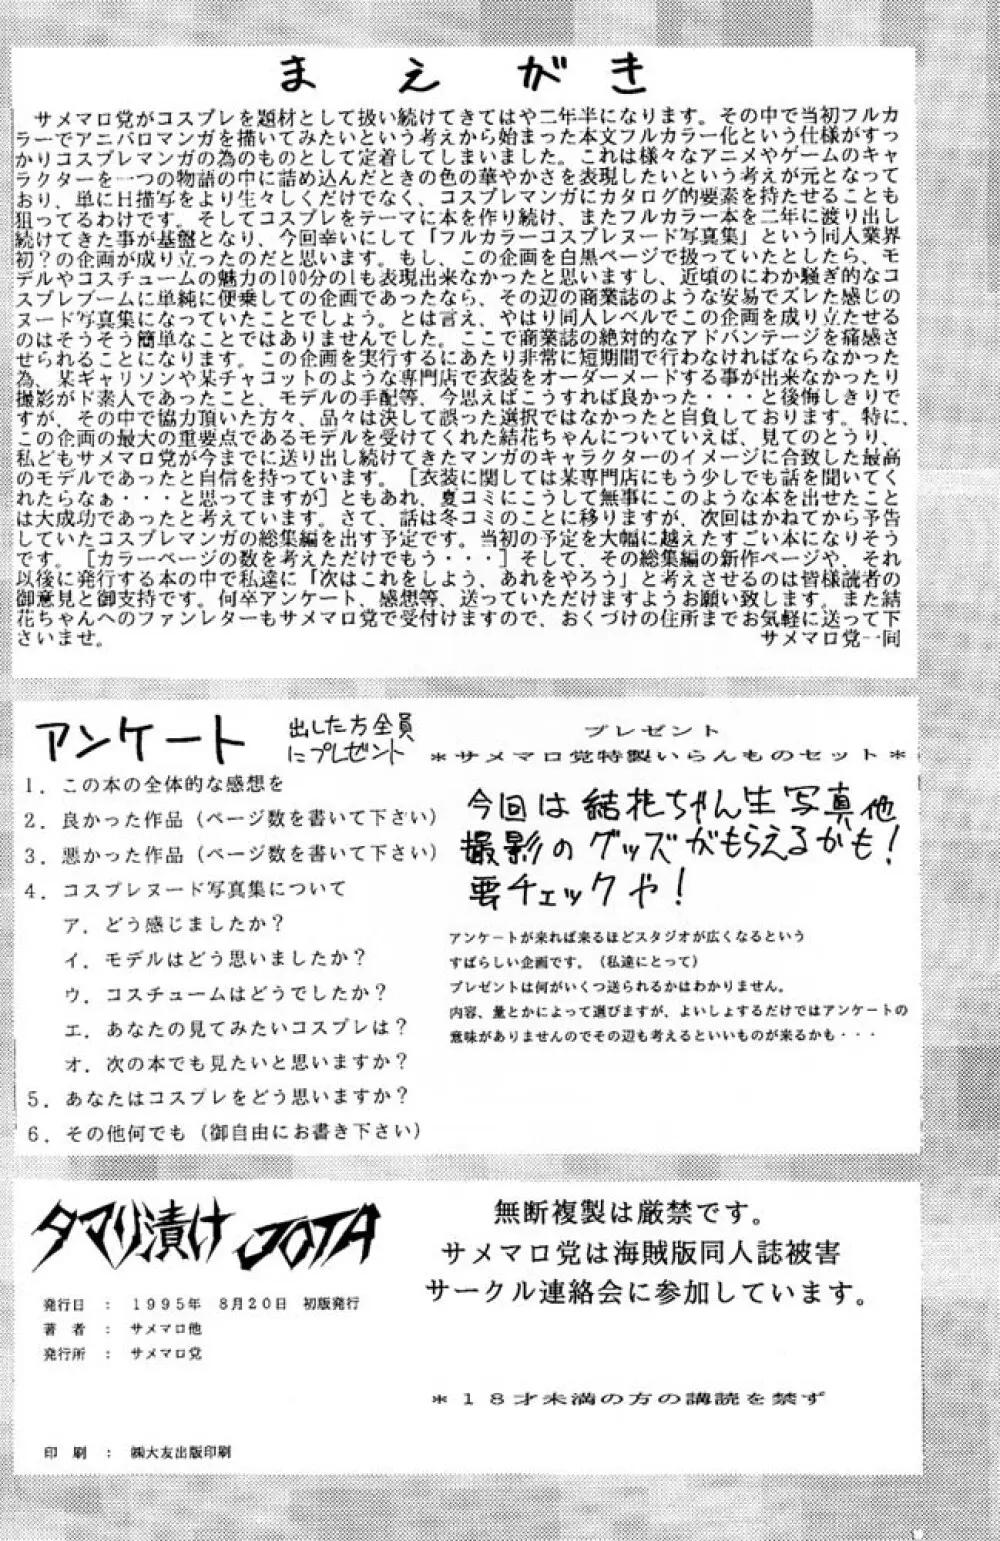 まえがき
サメマロ党がコスプレを題材として扱い続けてきてはや二年半になります。その中で当初フルカ
ラーでアニパロマンガを描いてみたいという考えから始まった本文フルカラー化という仕様がすっ
かりコスプレマンガの為のものとして定着してしまいました。これは様々なアニメやゲームのキャ
ラクターを一つの物語の中に詰め込んだときの色の華やかさを表現したいという考えが元となって
おり、単にH描写をより生々しくだけでなく、コスプレマンガにカタログ的要素を持たせることも
狙ってるわけです。そしてコスプレをテーマに本を作り続け、またフルカラー本を二年に渡り出し
続けてきた事が基盤となり、今回幸いにして「フルカラーコスプレヌード写真集」という同人業界
初？の企画が成り立ったのだと思います。もし、この企画を白黒ページで扱っていたとしたら、モ
デルやコスチュームの魅力の100分の1も表現出来なかったと思いますし、近頃のにわか騒ぎ的なコ
スプレブームに単純に便乗しての企画であったなら、その辺の商業誌のような安易でズレた感じの
ヌード写真集になっていたことでしょう。とは言え、やはり同人レベルでこの企画を成り立たせる
のはそうそう簡単なことではありませんでした。ここで商業誌の絶対的なアドバンテージを痛感さ
せられることになります。この企画を実行するにあたり非常に短期間で行わなければならなかった
為、某ギャリソンや某チャコットのような専門店で衣装をオーダーメードする事が出来なかったり
撮影がド素人であったこと、モデルの手配等、今思えばこうすれば良かった・・・と後悔しきりで
すが、その中で協力頂いた方々、品々は決して誤った選択ではなかったと自負しております。特に、
この企画の最大の重要点であるモデルを受けてくれた結花ちゃんについていえば、見てのとうり、
私どもサメマロ党が今までに送り出し続けてきたマンガのキャラクターのイメージに合致した最高
のモデルであったと自信を持っています。［衣装に関しては某専門店にもう少しでも話を聞いてく
れたらなぁ・・・と思ってますが］ともあれ、夏コミにこうして無事にこのような本を出せたこと
は大成功であったと考えています。さて、話は冬コミのことに移りますが、次回はかねてから予告
していたコスプレマンガの総集編を出す予定です。当初の予定を大幅に越えたすごい本になりそう
です。［カラーページの数を考えただけでもう・・・］そして、その総集編の新作ページや、それ
以後に発行する本の中で私達に「次はこれをしよう、あれをやろう」と考えさせるのは皆様読者の
御意見と御支持です。何卒アンケート、感想等、送っていただけますようお願い致します。また結
花ちゃんへのファンレターもサメマロ党で受付けますので、おくづけの住所までお気軽に送って下
さいませ。 サメマロ党一同
アンケート
出した方全員
にプレゼント
1．この本の全体的な感想を
2．良かった作品（ページ数を書いて下さい）
3．悪かった作品（ページ数を書いて下さい）
4．コスプレヌード写真集について
ア．どう感じましたか？
イ．モデルはどう思いましたか？
ウ．コスチュームはどうでしたか？
エ．あなたの見てみたいコスプレは？
オ．次の本でも見たいと思いますか？
5．あなたはコスプレをどう思いますか？
6．その他何でも（御自由にお書き下さい）
プレゼント
＊サメマロ党特製いらんものセット＊
今回は結花ちゃん生写真他
撮影のグッズがもらえるかも！
要チェックや！
アンケートが来れば来るほどスタジオが広くなるという
すばらしい企画です。（私達にとって）
プレゼントは何がいくつ送られるかはわかりません。
内容、量とかによって選びますが、よいしょするだけではアンケートの
意味がありませんのでその辺も考えるといいものが来るかも・・・
タマリ漬け JOTA
発行日 ： 1995年 8月20日 初版発行
著 者 ： サメマロ他
発行所 ： サメマロ党
印 刷 ： ㈱大友出版印刷
無断複製は厳禁です。
サメマロ党は海賊版同人誌被害
サークル連絡会に参加しています。
＊18才未満の方の講読を禁ず